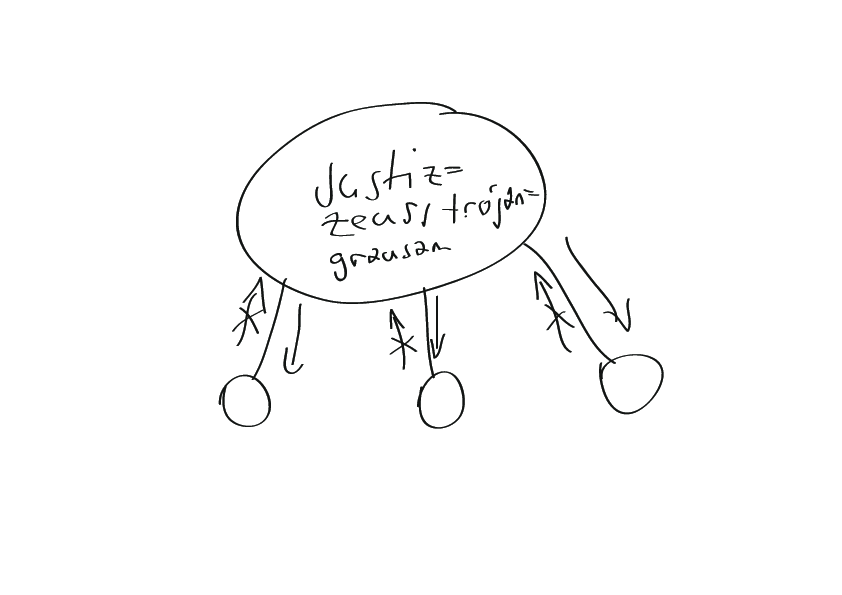 Justiz=
zeuss/trojan=
grausam